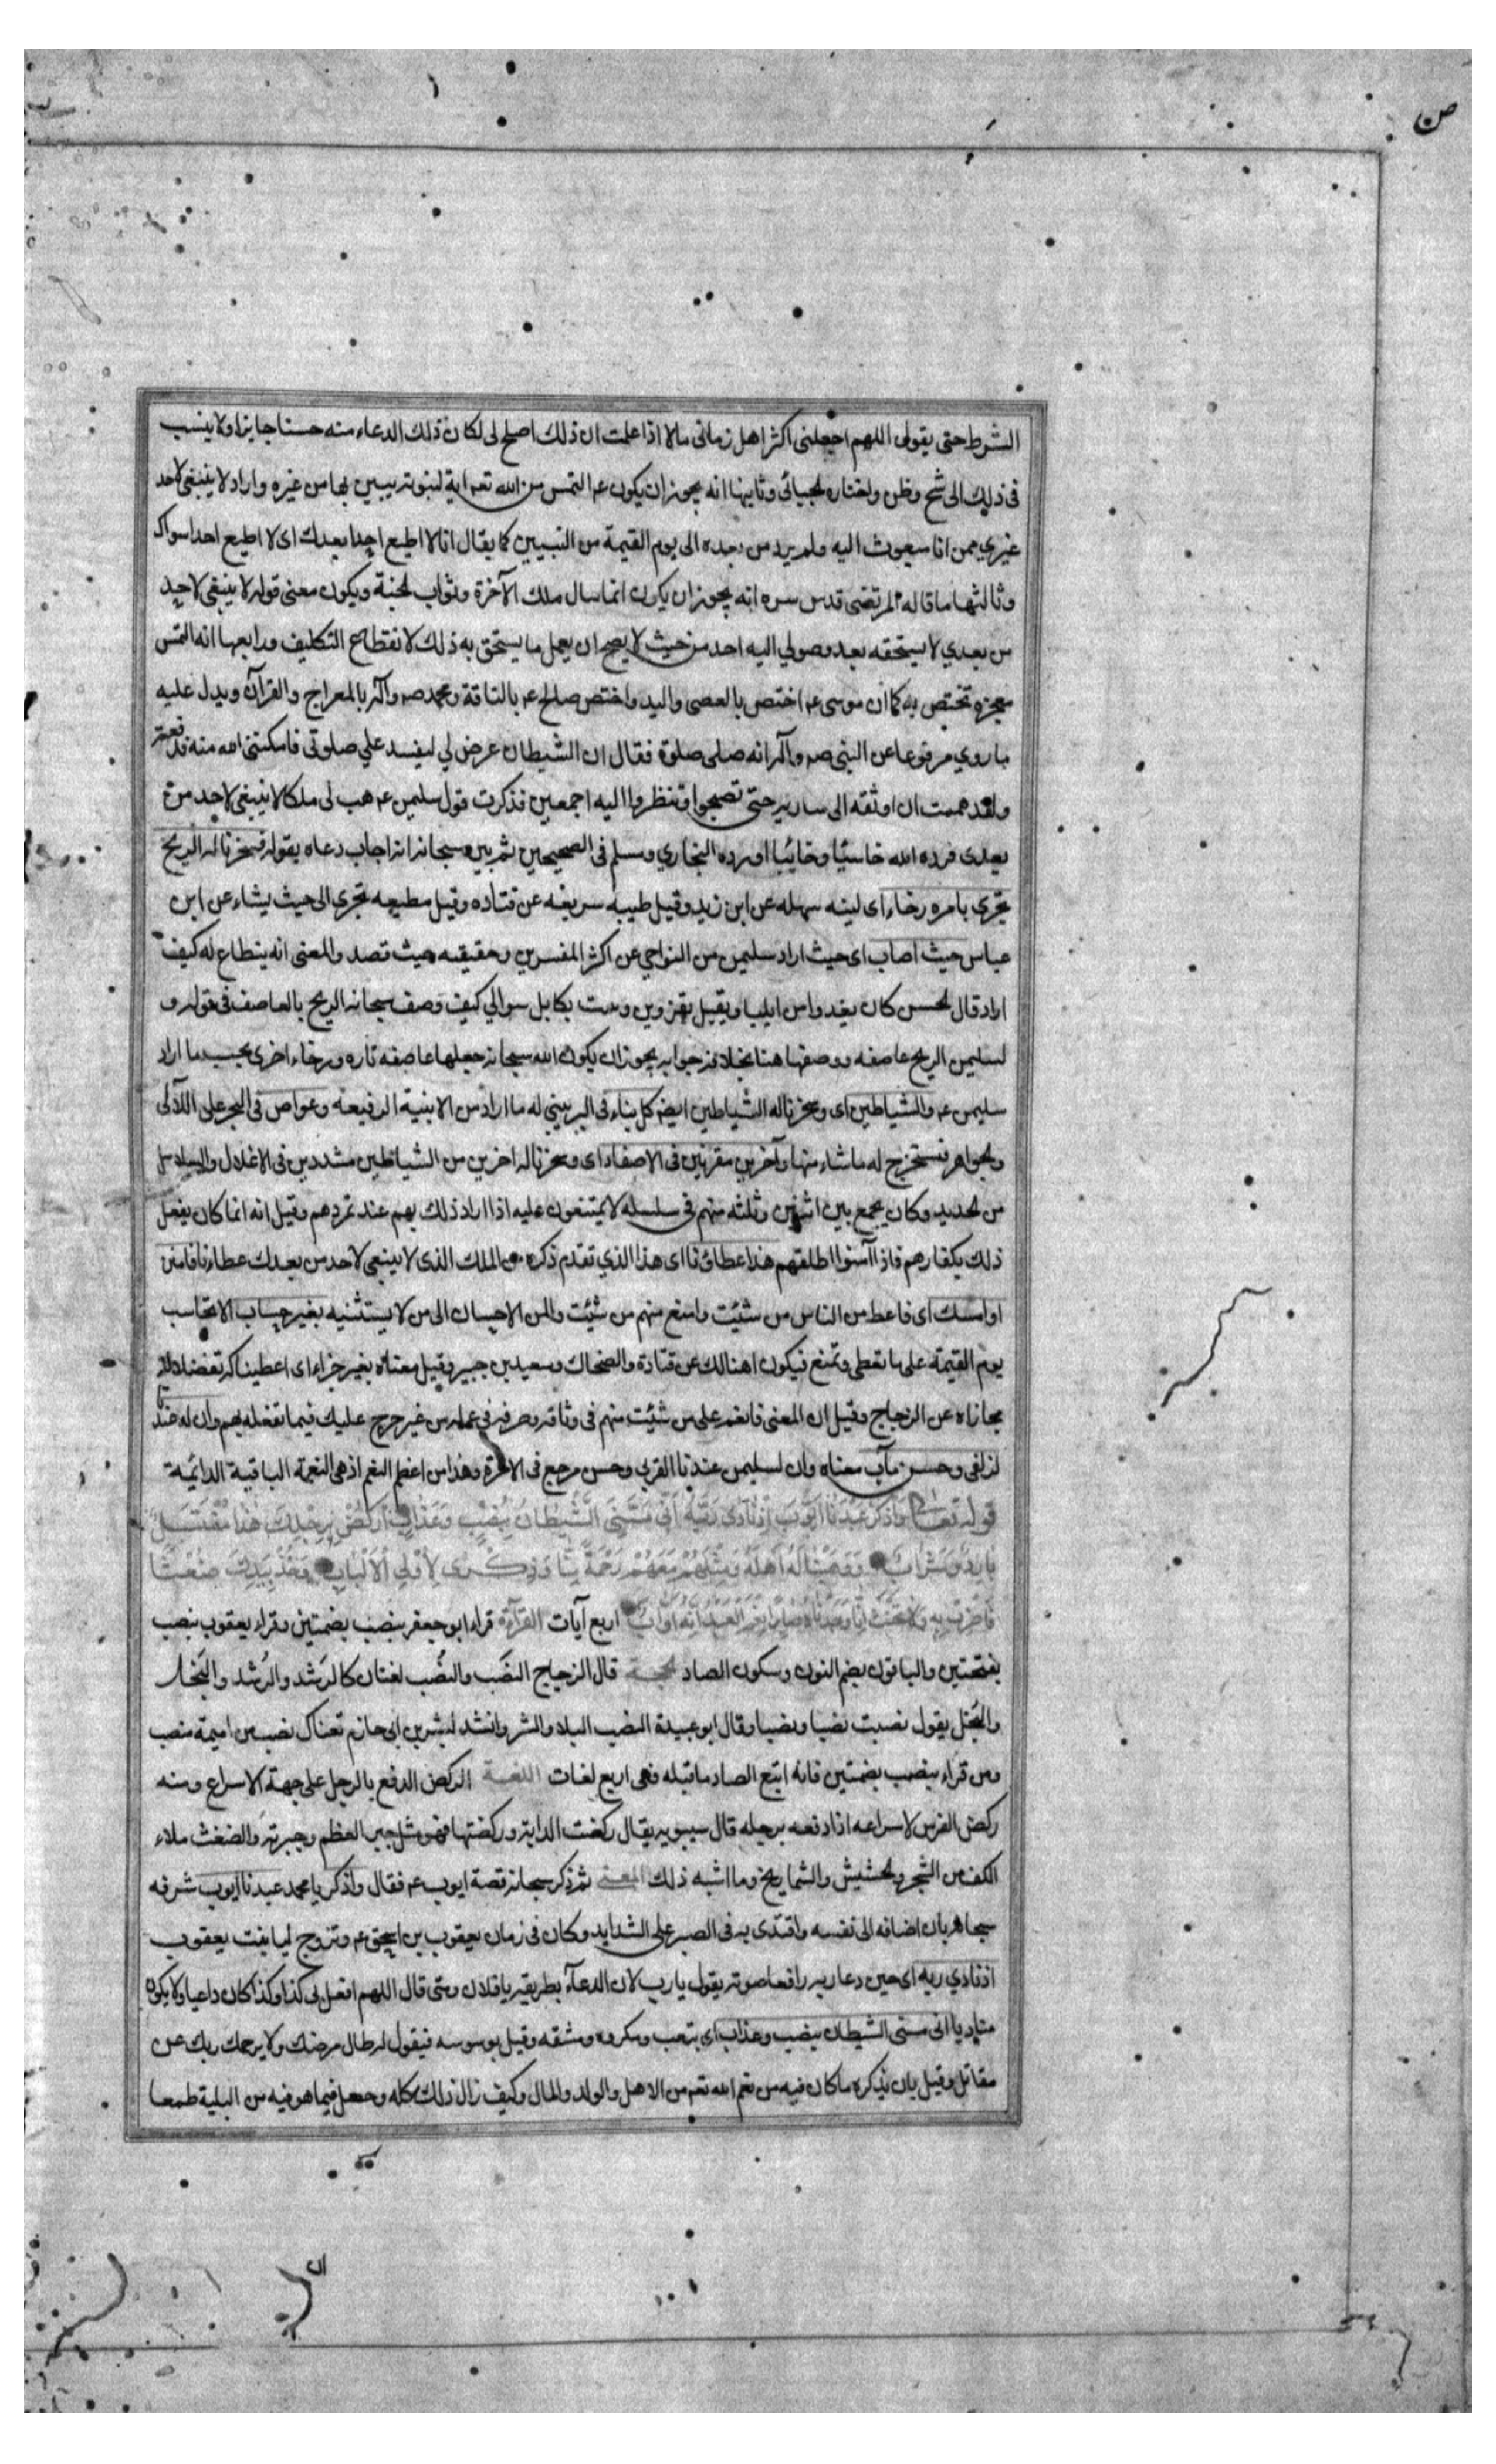 ص
الشرط حتى يقول اللهم اجعلنى اكثر اهل زمانى مالا اذا علمت ان ذلك اصلح لى لكان ذلك الدعاء منه حسنا جايزا ولا ينسب
فى ذلك الى شح وظن واختاره الجبائى وثانيها انه يجوز ان يكون عم التمس من الله تعم اية لنبوته يبين بها من غيره واراد لا ينبغى لاحد
غيري ممن انا مبعوث اليه ولم يرد من بعده الى يوم القيمة من النبيين كما يقال انا لا اطيع احدا بعدك اى لا اطيع احدا سواك
وثالثها ما قاله المرتضى قدس سره انه يجوز ان يكون انما سال ملك الآخرة وثواب الجنة ويكون معنى قوله لا ينبغى لاحد
من بعدي لا يستحقه بعد وصولي اليه احد من حيث لا يصح ان يعمل ما يستحق به ذلك لانقطاع التكليف ورابعها انه التمس
معجزه تختص به كما ان موسى عم اختص بالعصى واليد واختص صالح عم بالناقة ومحمد صم وآله بالمعراج والقرآن ويدل عليه
ما روي مرفوعا عن النبى صم وآله انه صلى صلوة فقال ان الشيطان عرض لي ليفسد علي صلوتى فامكننى الله منه
ولقد هممت ان اوثقه الى ساريه حتى تصبحوا وتنظروا اليه اجمعين فذكرت قول سليمن عم هب لى ملكا لا ينبغى لاحد من
بعدى فرده الله خاسئا وخائبا اورده البخاري ومسلم فى الصحيحين ثم بين سبحانه انه اجاب دعاه بقوله فسخرنا له الريح
تجرى بامره رخاء اى لينه سهله عن ابن زيد وقيل طيبه سريعه عن قتاده وقيل مطيعه تجرى الى حيث يشاء عن ابن
عباس حيث اصاب اى حيث اراد سليمن من النواحي عن اكثر المفسرين وحقيقه حيث قصد والمعنى انه ينطاع له كيف
اراد قال الحسن كان يغدو من ايليا ويقيل بقزوين ويبيت بكابل سوالي كيف وصف سبحانه الريح بالعاصف فى قوله و
لسليمن الريح عاصفه ووصفها هنا بخلافه جوابه يجوز ان يكون الله سبحانه جعلها عاصفه تاره ورخاء اخرى بحسب ما اراد
سليمن عم والشياطين اى وسخرنا له الشياطين ايضم كل بناء فى البر يبنى له ما اراد من الابنية الرفيعة وغواص فى البحر على اللآلى
والجواهر فيستخرج له ما شاء منها وآخرين مقرنين فى الاصفاد اى وسخرنا له اخرين من الشياطين مشددين فى الاغلال والسلاسل
من الحديد وكان يجمع بين اثنين وثلثه منهم فى سلسله لا يمتنعون عليه اذا اراد ذلك بهم عند تمردهم وقيل انه انما كان يفعل
ذلك بكفارهم فاذا آمنوا اطلقهم هذا عطاؤنا اى هذا الذي تقدم ذكره من الملك الذى لا ينبغى لاحد من بعدك عطاءنا فامنن
او امسك اى فاعط من الناس من شئت وامنع منهم من شئت والمن الاحسان الى من لا يستثنيه بغير حساب الا تحاسب
يوم القيمة على ما تعطى وتمنع فيكون اهنا لك عن قتادة والضحاك وسعيد بن جبير وقيل معناه بغير جزاء اى اعطيناكه تفضلا لا
مجازاه عن الزجاج وقيل ان المعنى فانعم على من شئت منهم فى وثاقه وصرفه في عمله من غير حرج عليك فيما تفعله بهم وان له عندنا
لزلفى وحسن مآب معناه وان لسليمن عندنا القربى وحسن مرجع فى الاخرة وهذا من اعظم النعم اذ هى النعمة الباقية الدائمة
قوله تعالى وَاذْكُرْ عَبْدَنَا اَيُّوبَ اِذْ نَادَى رَبَّهُ اَنِّى مَسَّنِىَ الشَّيْطَانُ بِنُصْبٍ وَعَذَابٍ اُرْكُضْ بِرِجْلِكَ هٰذَا مُغْتَسَلٌ
بَارِدٌ وَشَرَابٌ وَوَهَبْنَا لَهُ اَهْلَهُ وَمِثْلَهُمْ مَعَهُمْ رَحْمَةً مِنَّا وَذِكْرَى لِاُولِى الْاَلْبَابِ وَخُذْ بِيَدِكَ ضِغْثًا
فَاضْرِبْ بِهِ وَلَا تَحْنَثْ اِنَّا وَجَدْنَاهُ صَابِرًا نِعْمَ الْعَبْدُ اِنَّهُ اَوَّابٌ اربع آيات القرآءة قراء ابو جعفر بنصب بضمتين وقراء يعقوب بنصب
بفتحتين والباقون بضم النون وسكون الصاد الحجة قال الزجاج النصَب والنصُب لغتان كالرَشد والرُشد والبَخل
والبُخل يقول نصبت نصبا ونصبا وقال ابو عبيدة النصب البلاء والشر وانشد لبشر بن ابى حازم تعناك نصب من اميمة منصب
ومن قراء بنصب بضمتين فانه اتبع الصاد ما قبله فهى اربع لغات اللغة الركض الدفع بالرجل على جهة الاسراع ومنه
ركض الفرس لاسراعه اذا دفعه برجله قال سيبويه يقال ركضت الدابة وركضتها فهو مثل جبر العظم وجبرته والضغث ملاء
الكف من الشجر والحشيش والشماريخ وما اشبه ذلك المعنى ثم ذكر سبحانه قصة ايوب عم فقال واذكر يا محمد عبدنا ايوب شرفه
سبحانه بان اضافه الى نفسه واقتدى به فى الصبر على الشدايد وكان فى زمان يعقوب بن اسحق عم وتزوج ليا بنت يعقوب
اذ نادي ربه اى حين دعا ربه رافعا صوته يقول يا رب لان الدعآء بطريقه يا فلان ومتى قال اللهم افعل لى كذا وكذا كان داعيا ولا يكون
مناديا انى مسنى الشيطان بنصب وعذاب اى بتعب ومكروه ومشقه وقيل بوسوسه فيقول له طال مرضك ولا يرحمك ربك عن
مقاتل وقيل بان يذكره ما كان فيه من نعم الله تعم من الاهل والولد والمال وكيف زال ذلك كله وحصل فيما هو فيه من البلية طمعا